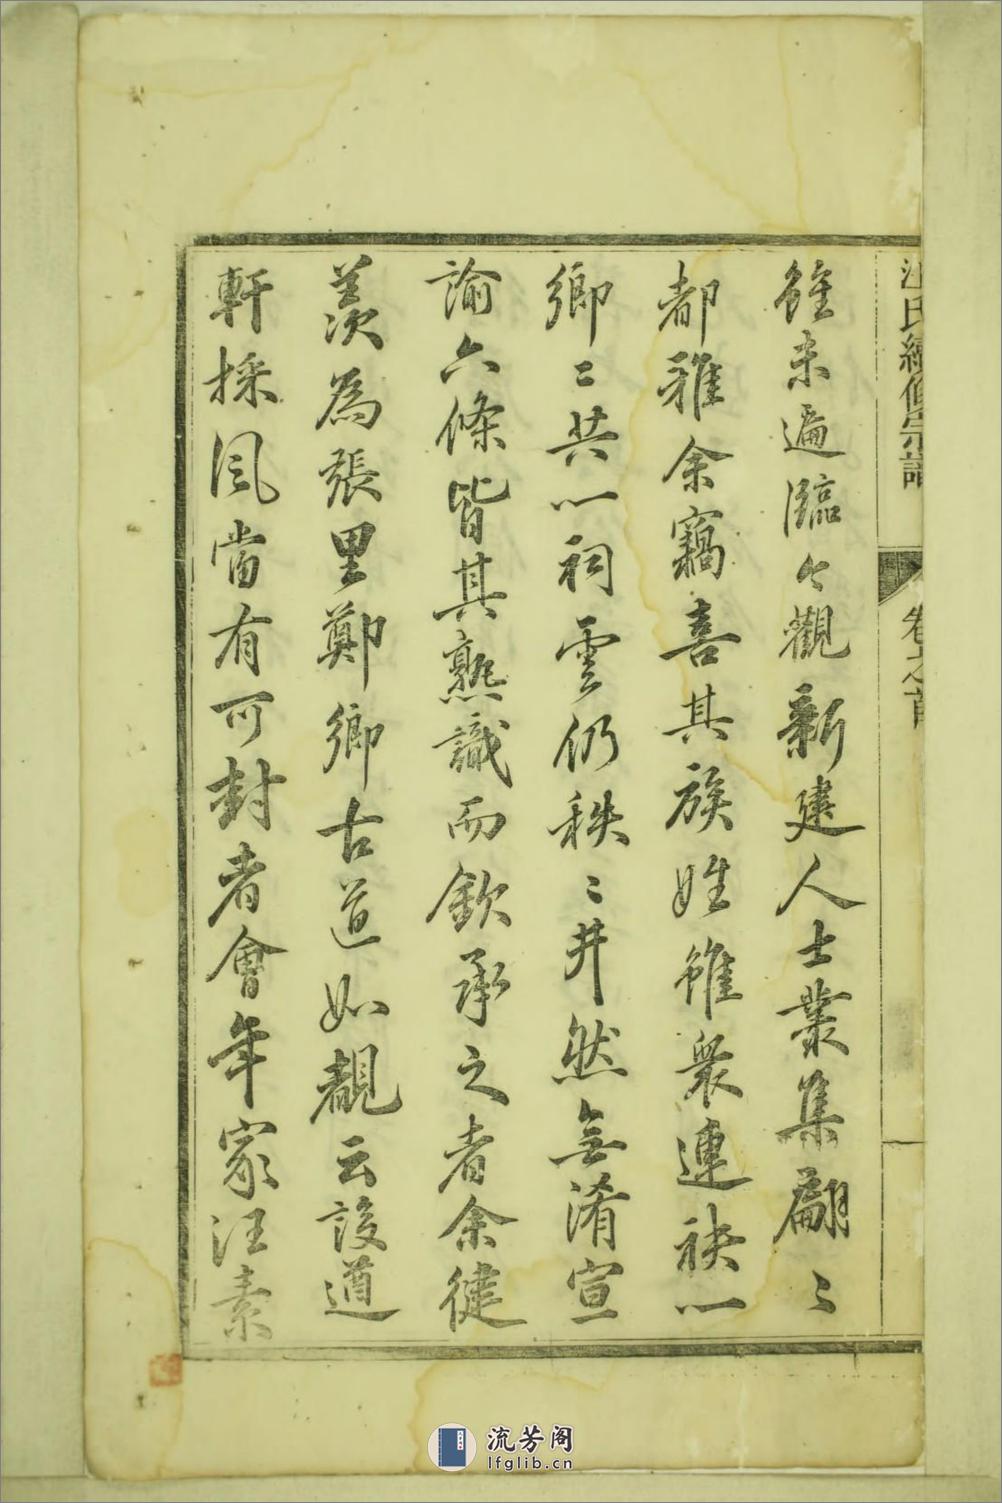 氏續修宗譜 卷之首
雖未遍臨今觀新建人士叢集翩〻
都雅余竊喜其族姓雖衆連袂一
鄉〻共一祠雲仍秩〻井然無淆宣
諭六條皆其熟識而欽承之者余健
羨為張里鄭鄉古道如覩云設道
軒採風當有可封者會年家汪素
流芳阁
lfglib.cn